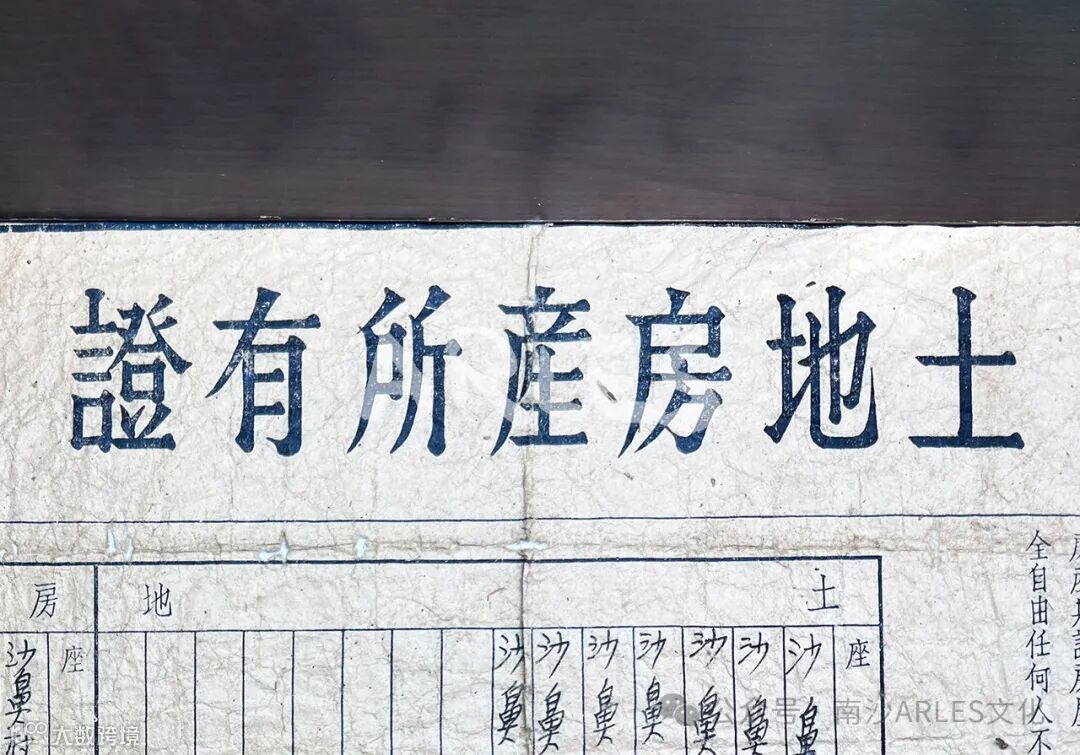 土地房產所有證
全自由任何人不
土地
房
座
沙鼻
沙鼻
沙鼻
沙鼻
沙鼻
沙鼻
沙鼻
座
沙鼻村
公众号 南沙ARLES文化
大数跨境